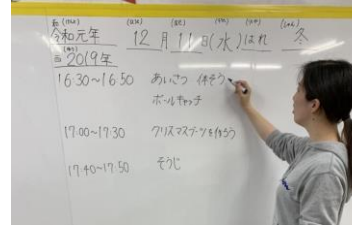 令和元年 12月11日(水)はれ 冬
2019年
16:30~16:50 あいさつ 体そう
ボールキャッチ
17:00~17:30 クリスマスブーツを作ろう
17:40~17:50 そうじ